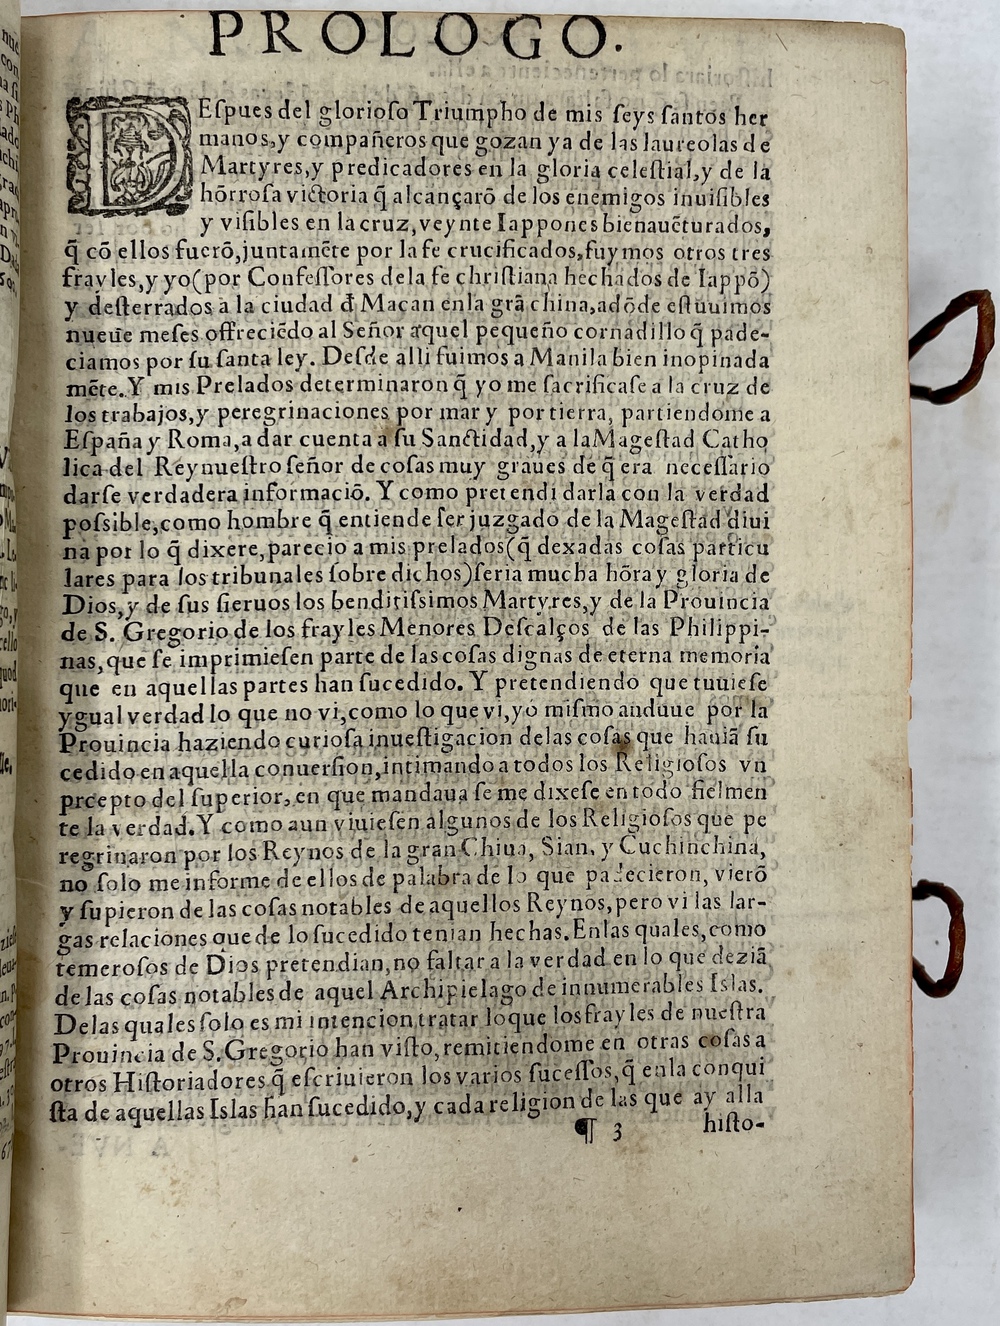 PROLOGO.
DEſpues del glorioſo Triumpho de mis ſeys ſantos her
manos, y compañeros que gozan ya de las laureolas de
Martyres, y predicadores en la gloria celeſtial, y de la
hõrroſa victoria q̃ alcançarõ de los enemigos inuiſibles
y viſibles en la cruz, veynte Iappones bienauẽturados,
q̃ cõ ellos fuerõ, juntamẽte por la fe crucificados, fuymos otros tres
frayles, y yo (por Confeſſores dela fe chriſtiana hechados de Iappõ)
y deſterrados a la ciudad đ Macan enla grã china, adõde eſtuuimos
nueue meſes offreciẽdo al Señor aquel pequeño cornadillo q̃ pade-
ciamos por ſu ſanta ley. Deſde alli fuimos a Manila bien inopinada
mẽte. Y mis Prelados determinaron q̃ yo me ſacrificaſe a la cruz de
los trabajos, y peregrinaciones por mar y por tierra, partiendome a
Eſpaña y Roma, a dar cuenta a ſu Sanctidad, y a la Mageſtad Catho
lica del Rey nueſtro ſeñor de coſas muy graues de q̃ era neceſſario
darſe verdadera informaciõ. Y como pretendi darla con la verdad
poſsible, como hombre q̃ entiende ſer juzgado de la Mageſtad diui
na por lo q̃ dixere, parecio a mis prelados (q̃ dexadas coſas particu
lares para los tribunales ſobre dichos) ſeria mucha hõra y gloria de
Dios, y de ſus ſieruos los benditiſsimos Martyres, y de la Prouincia
de S. Gregorio de los frayles Menores Deſcalços de las Philippi-
nas, que ſe imprimieſen parte de las coſas dignas de eterna memoria
que en aquellas partes han ſucedido. Y pretendiendo que tuuieſe
ygual verdad lo que no vi, como lo que vi, yo miſmo anduue por la
Prouincia haziendo curioſa inueſtigacion delas coſas que hauiã ſu
cedido en aquella conuerſion, intimando a todos los Religioſos vn
prcepto del ſuperior, en que mandaua ſe me dixeſe en todo fielmen
te la verdad. Y como aun viuieſen algunos de los Religioſos que pe
regrinaron por los Reynos de la gran China, Sian, y Cuchinchina,
no ſolo me informe de ellos de palabra de lo que padecieron, vierõ
y ſupieron de las coſas notables de aquellos Reynos, pero vi las lar-
gas relaciones que de lo ſucedido tenian hechas. Enlas quales, como
temeroſos de Dios pretendian, no faltar a la verdad en lo que deziã
de las coſas notables de aquel Archipielago de innumerables Islas.
Delas quales ſolo es mi intencion tratar loque los frayles de nueſtra
Prouincia de S. Gregorio han viſto, remitiendome en otras coſas a
otros Hiſtoriadores q̃ eſcriuieron los varios ſuceſſos, q̃ enla conqui
ſta de aquellas Islas han ſucedido, y cada religion de las que ay alla
¶ 3 hiſto-